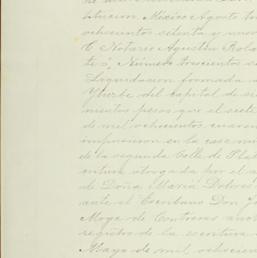 titucion, México Agosto tr
ochocientos setenta y nuev
El Notario Agustin Rolda
Número trescientos se
Liquidacion formada
Yturbe del Capital de si
mientos pesos que el siete
de mil ochocientos cuaren
impusieron en la casa nu
de la segunda Calle de Pla
critura otorgada por el
de Doña María Dolores
ante el Escribano Don
Moya de Contreras
registro de la escritura
Mayo de mil ochocien